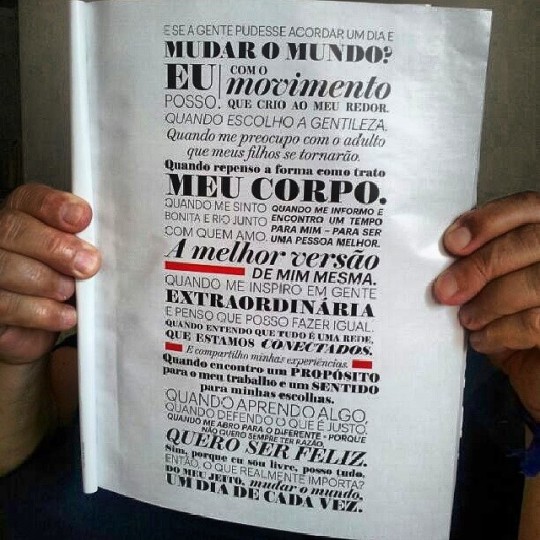 E SE A GENTE PUDESSE ACORDAR UM DIA E
MUDAR O MUNDO?
EU POSSO.
COM O movimento
QUE CRIO AO MEU REDOR.
QUANDO ESCOLHO A GENTILEZA.
Quando me preocupo com o adulto
que meus filhos se tornarão.
Quando repenso a forma como trato
MEU CORPO.
QUANDO ME SINTO
BONITA E RIO JUNTO
COM QUEM AMO.
QUANDO ME INFORMO E
ENCONTRO UM TEMPO
PARA MIM – PARA SER
UMA PESSOA MELHOR.
A melhor versão
DE MIM MESMA.
QUANDO ME INSPIRO EM GENTE
EXTRAORDINÁRIA
E PENSO QUE POSSO FAZER IGUAL.
QUANDO ENTENDO QUE TUDO É UMA REDE,
QUE ESTAMOS CONECTADOS.
E compartilho minhas experiências.
Quando encontro um PROPÓSITO
para o meu trabalho e um SENTIDO
para minhas escolhas.
QUANDO APRENDO ALGO,
QUANDO DEFENDO O QUE É JUSTO,
QUANDO ME ABRO PARA O DIFERENTE - PORQUE
NÃO QUERO SEMPRE TER RAZÃO,
QUERO SER FELIZ.
Sim, porque eu sou livre, posso tudo.
ENTÃO, O QUE REALMENTE IMPORTA?
DO MEU JEITO, mudar o mundo,
UM DIA DE CADA VEZ.